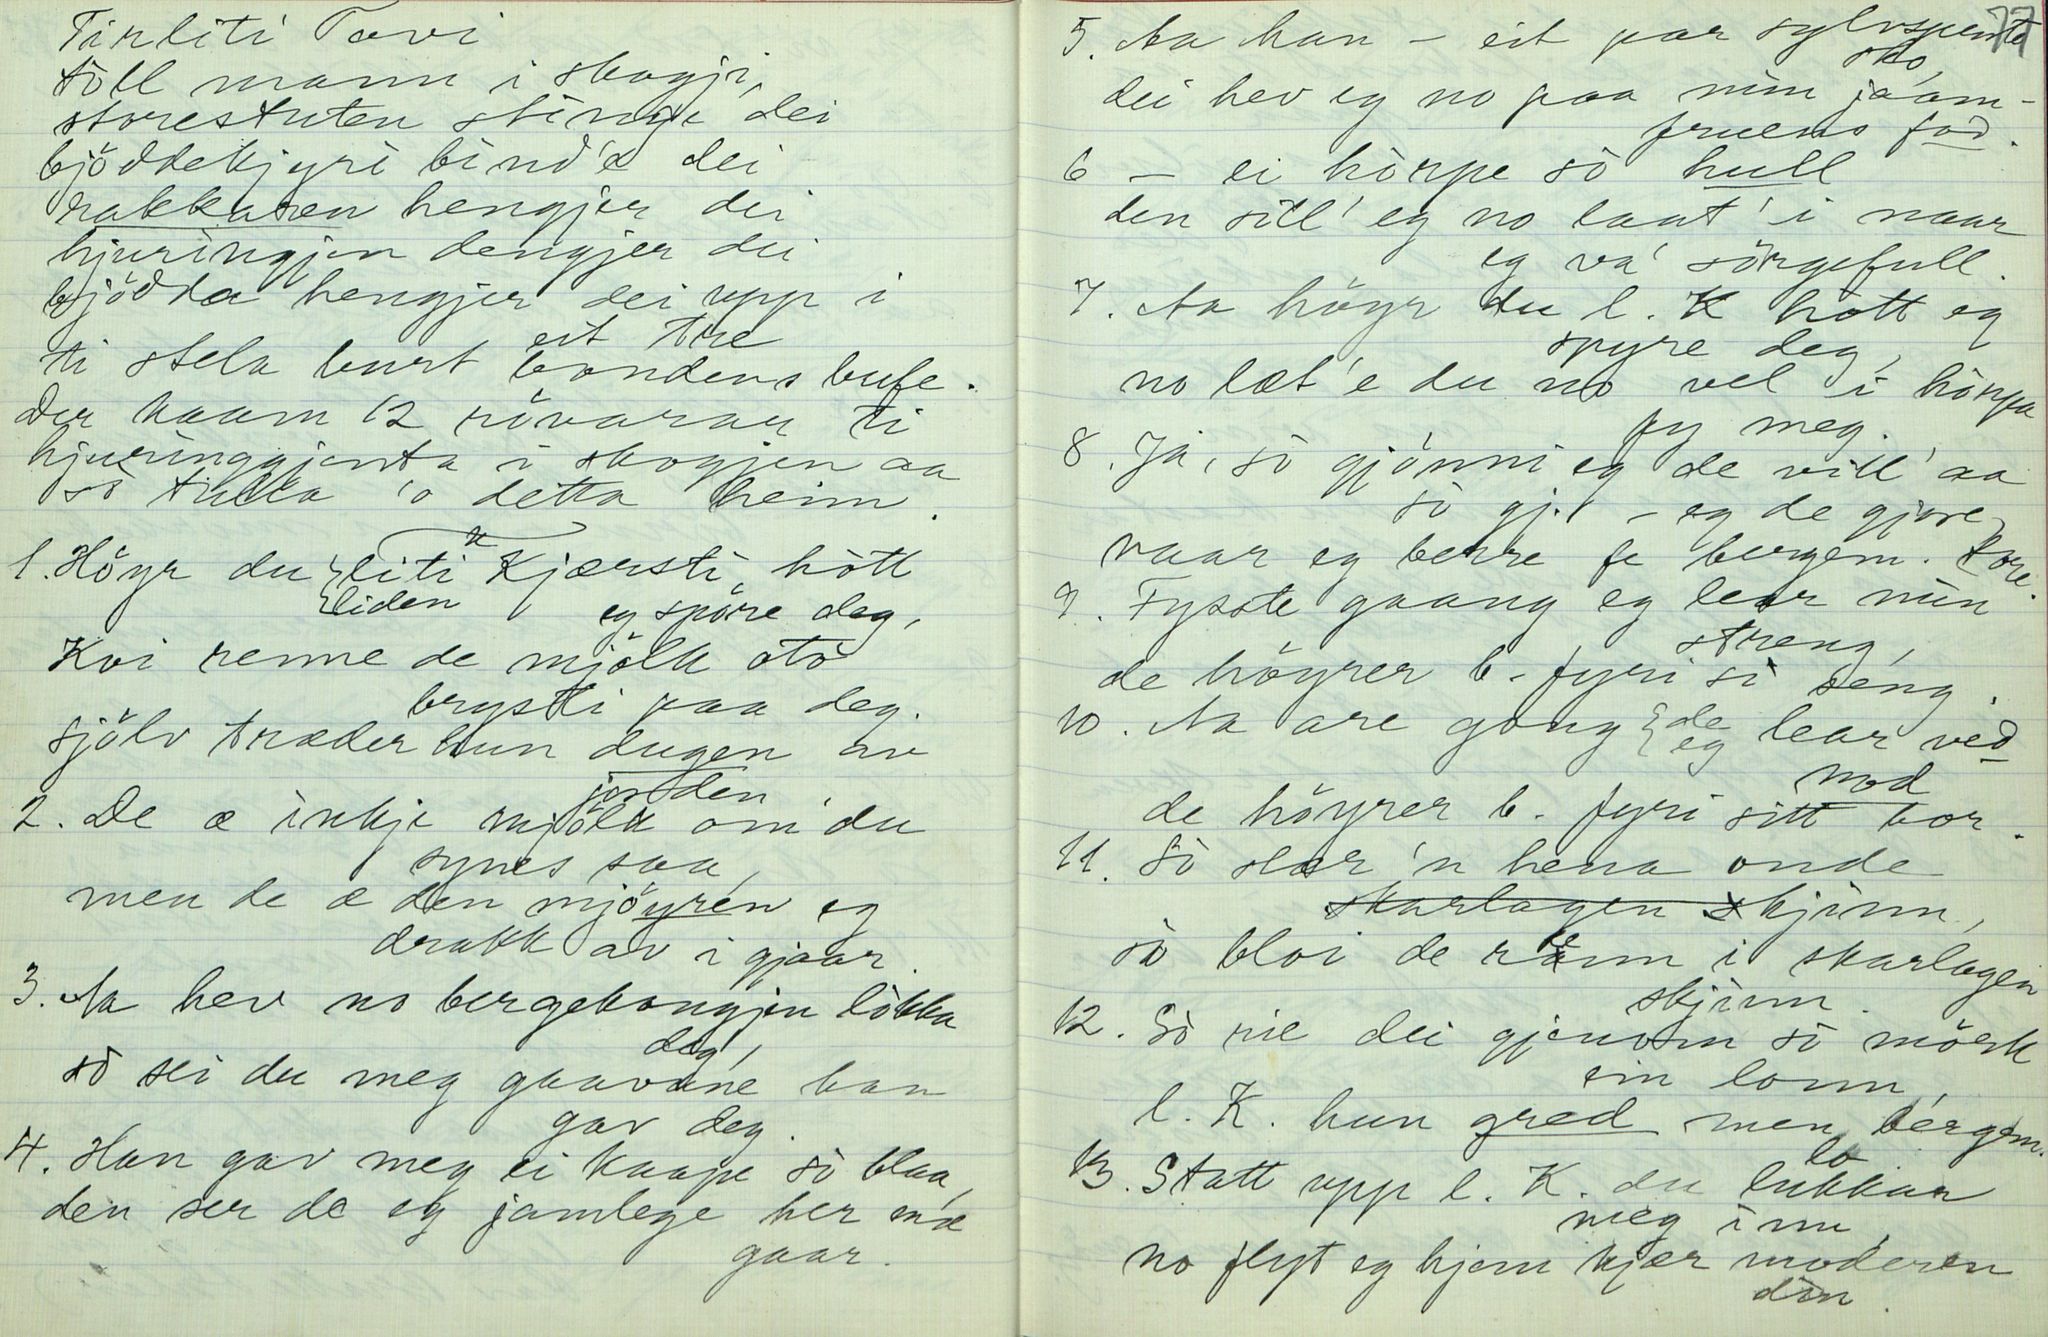 Tirliti Tovi
tòll mann i skogji,
storestuten stinga dei
bjöddekjyri bind'e dei
rakkaren hengjer dei
hjuringjen dengjer dei
bjödda hengjer dei upp i
eit tre
ti stela burt bondens bufe.
Der kaam 12 rövarar ti
hjuringgjenta i skogjen aa
sò tulla 'o detta heim.
1. Höyr du {liti Kjærsti, hòtt
{liden eg spöre deg,
Kvi renne de mjölk oto
brysti paa deg.
Sjölv træder hun dugen av
jorden
2. De æ inkje mjölk om du
synes saa,
men de æ den mjöyren eg
drakk av i gjaar.
3. Aa hev no bergekongjen lòkka
deg,
sò sei du meg gaavune han
gav deg.
4. Han gav meg ei kaape sò blaa,
den ser de eg jamlege her mæ
gaar.
77
5. Aa han – eit par sylvspente
sko,
dei hev eg no paa min jaam-
fruens fod.
6 – ei hòrpe sò hull
den sill' eg no laat' i naar
eg va' sörgefull.
7. Aa höyr du l. K hòtt eg
spyre deg,
no læt'e du no vel i hòrpa
fy meg.
8. Ja, sò gjònni eg de vill' aa
sò gj. – eg de gjore,
vaar eg berre fe bergem. kore.
9. Fysste gaang eg lear min
streng,
de höyrer b. fyri si seng.
10. Aa are gòng {de
{eg lear ved
nod
de höyrer b. fyri sitt bor.
11. Sò slær 'n hena onde
skarlagen skjinn,
sò bloi de rann i skarlagen
skjinn.
12. Sò rie dei gjenom sò mörk
ein lonn,
l. K. hun græd men bergem.
lo
13. Statt upp l. K. du lukkar
meg inn,
no flyt eg hjem kjær moderen
din.